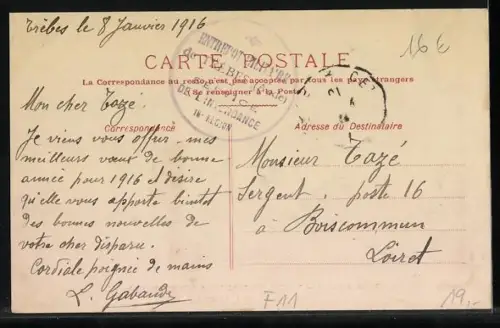 Trèbes le 8 Janvier 1916
16€
CARTE POSTALE
La Correspondance au recto n'est pas acceptée par tous les pays étrangers
(Se renseigner à la Poste)
DE TREBES (Aude)
SERVICE
DE L'INTENDANCE
16e REGION
Correspondance
Adresse du Destinataire
Mon cher Tazé.
Je viens vous offrir mes
meilleurs vœux de bonne
année pour 1916 et désire
qu'elle vous apporte bientot
des bonnes nouvelles de
votre cher disparu.
Cordiale poignée de mains
L. Gabaude
Monsieur Tazé
Sergent, poste 16
à Boiscommun
Loiret
F11
19,-